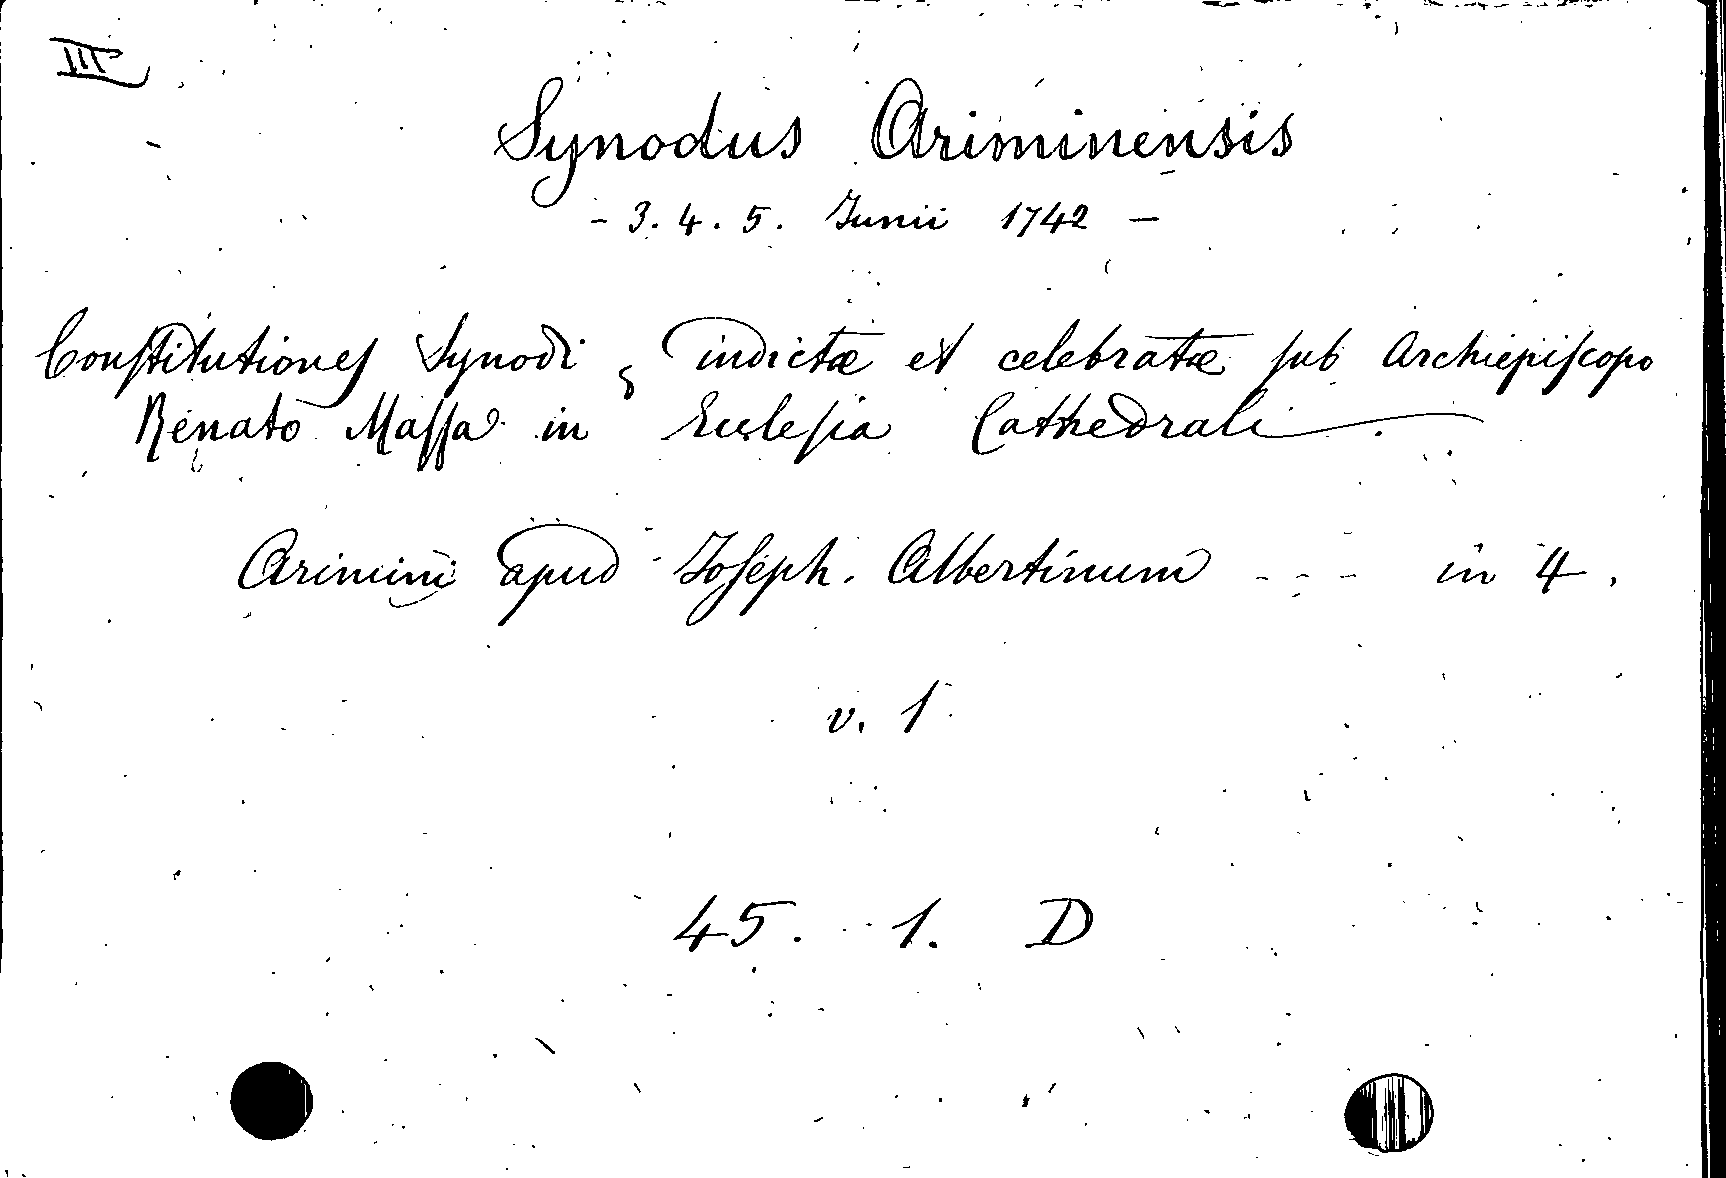 III
Synodus Ariminensis
- 3. 4. 5. Junii 1742 -
Conſtitutioneſ Synodi, indictæ et celebratæ ſub Archiepiſcopo
Renato Maſſa in Eccleſia Cathedrali.
Arimini apud Joſeph. Albertinum - - - in 4.
v. 1
45. 1. D